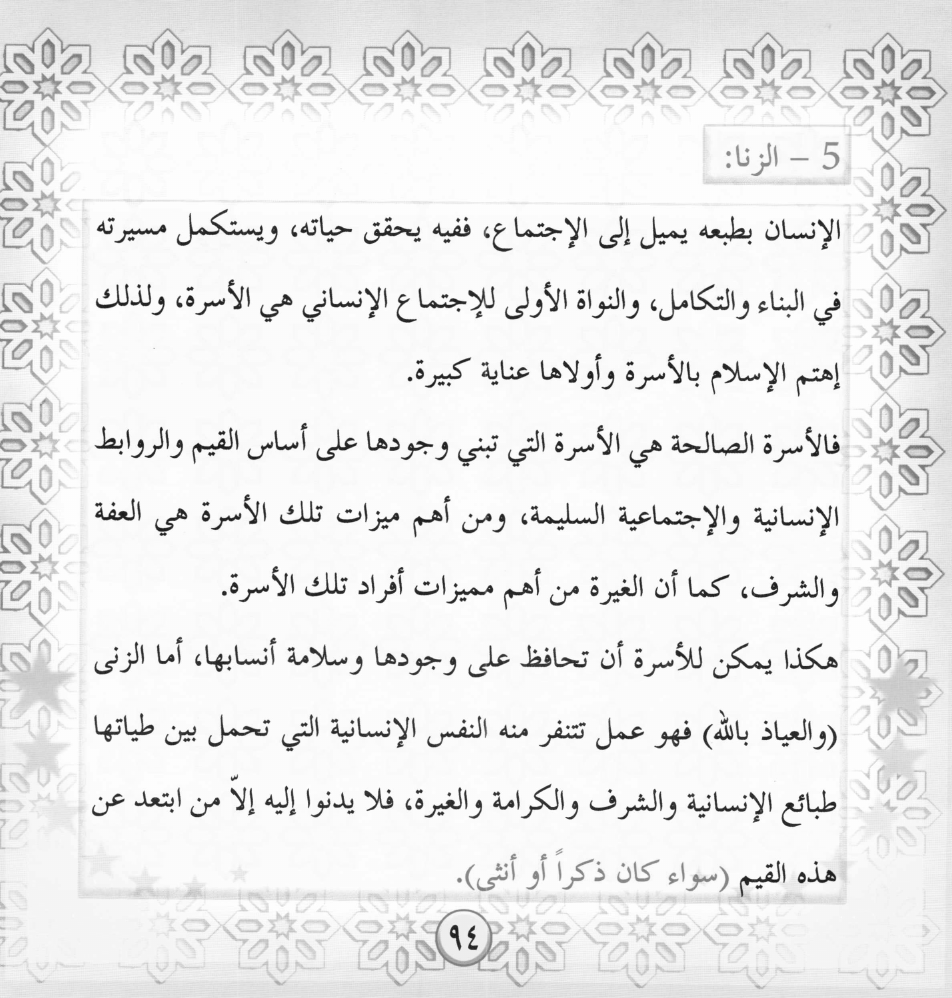 5 – الزنا:
الإنسان بطبعه يميل إلى الإجتماع، ففيه يحقق حياته، ويستكمل مسيرته
في البناء والتكامل، والنواة الأولى للإجتماع الإنساني هي الأسرة، ولذلك
إهتم الإسلام بالأسرة وأولاها عناية كبيرة.
فالأسرة الصالحة هي الأسرة التي تبني وجودها على أساس القيم والروابط
الإنسانية والإجتماعية السليمة، ومن أهم ميزات تلك الأسرة هي العفة
والشرف، كما أن الغيرة من أهم مميزات أفراد تلك الأسرة.
هكذا يمكن للأسرة أن تحافظ على وجودها وسلامة أنسابها، أما الزنى
(والعياذ بالله) فهو عمل تتنفر منه النفس الإنسانية التي تحمل بين طياتها
طبائع الإنسانية والشرف والكرامة والغيرة، فلا يدنوا إليه إلاّ من ابتعد عن
هذه القيم (سواء كان ذكراً أو أنثى).
٩٤